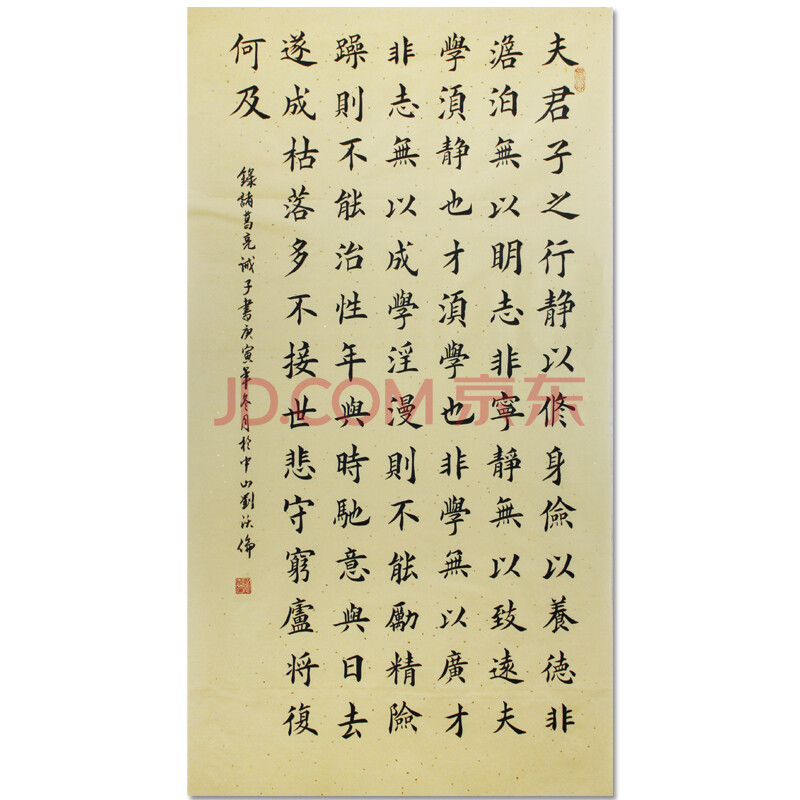 夫君子之行静以修身儉以養德非
澹泊無以明志非寧静無以致遠夫
學須静也才須學也非學無以廣才
非志無以成學淫漫則不能勵精險
躁則不能治性年與時馳意與日去
遂成枯落多不接世悲守窮廬將復
何及
錄諸葛亮誡子書庚寅年冬月於中山劉沃倫
JD.COM 京东